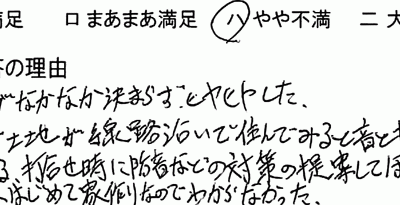 満足 ロ まあまあ満足 ハ やや不満 ニ 大
答の理由
がなかなか決まらずヒヤヒヤした、
土地が線路沿いで住んでみると音と
る、打合せ時に防音などの対策の提案してほ
はじめて家作りなのでわからなかった、